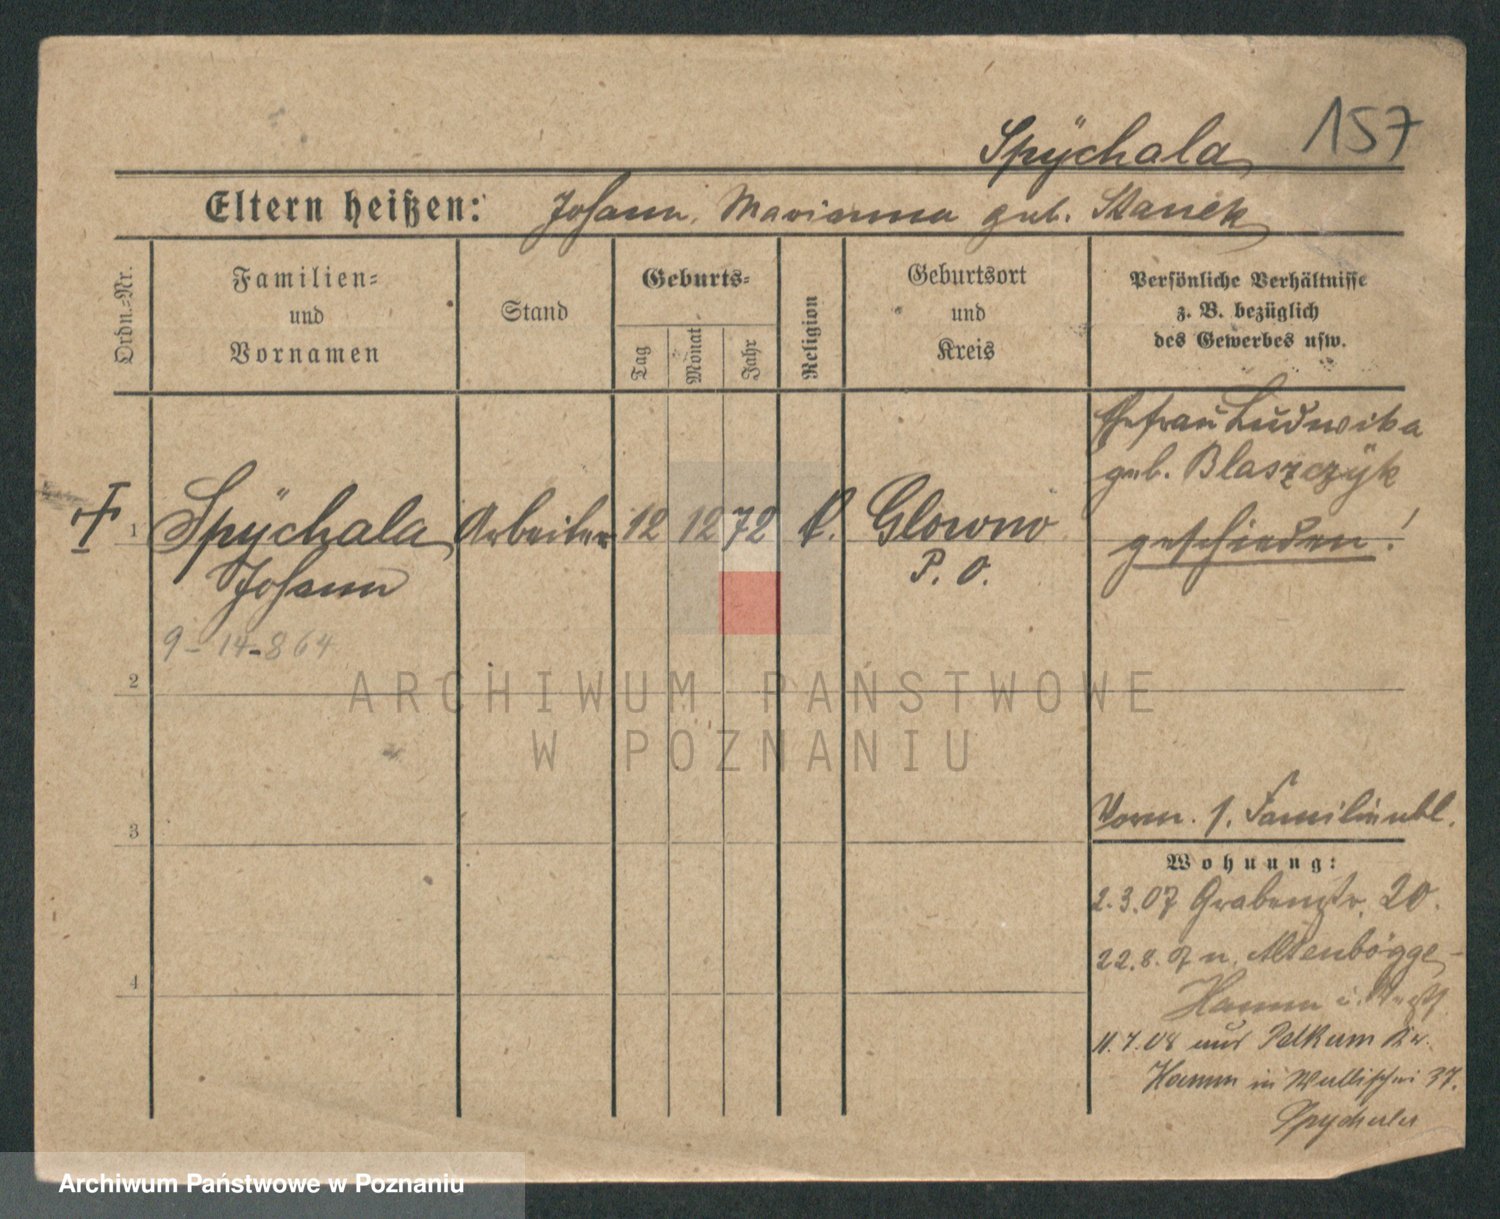 Spÿchala
157
Eltern heißen: Johann, Marianna geb. Stanek
Ordn.-Nr.
Familien-
und
Vornamen
Stand
Geburts-
Tag
Monat
Jahr
Religion
Geburtsort
und
Kreis
Persönliche Verhältnisse
z. B. bezüglich
des Gewerbes usw.
Ehefrau Ludwika
geb. Blaszczÿk
geschieden!
1 Spÿchala Arbeiter 12 12 72 k. Glowno
Johann P. O.
9-14-864
2
3
4
ARCHIWUM PAŃSTWOWE
W POZNANIU
Vorm. 1. Familienbl.
Wohnung:
2.3.07 Grabenstr. 20.
22.8. n. Altenbögge
Hamm i. Westf.
11.7.08 aus Pelkum Kr.
Hamm in Wallischei 37.
Spychala
Archiwum Państwowe w Poznaniu